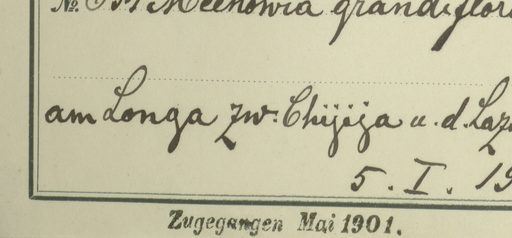 № grandiflor
am Longa zw. Chijija u. d. Laz
5. I. 19
Zugegangen Mai 1901.